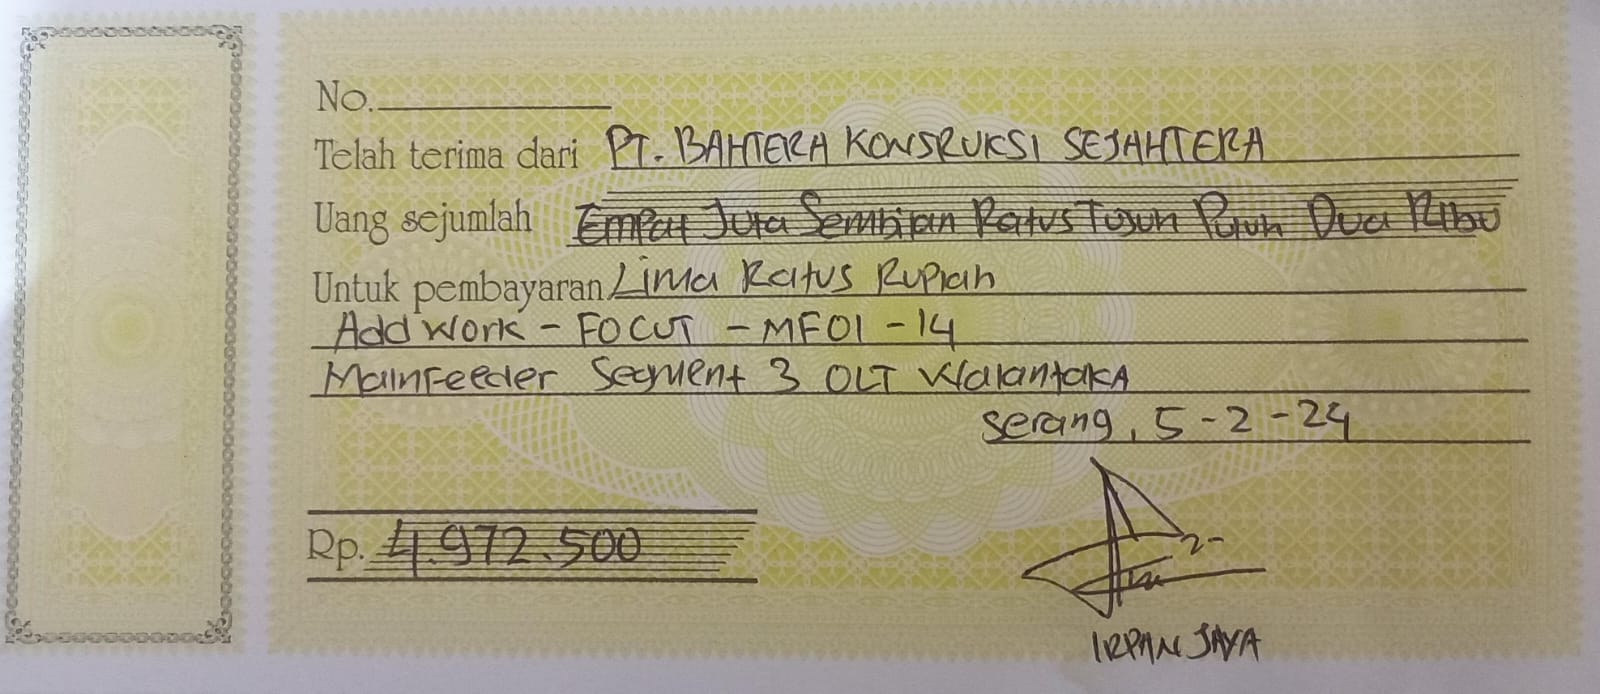 No.
Telah terima dari PT. BAHTERA KONSRUKSI SEJAHTERA
Uang sejumlah Empat Juta Sembilan Ratus Tujuh Puluh Dua Ribu
Untuk pembayaran Lima Ratus Rupiah
Add Work - FO CUT - MF01 - 14
Mainfeeder Segment 3 OLT Walantaka
Serang, 5-2-24
Rp. 4.972.500
IRPAN JAYA